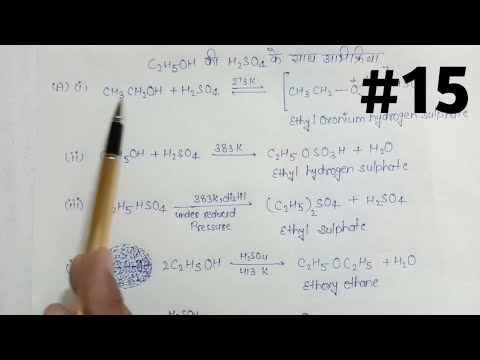 C2H5OH की H2SO4 के साथ अभिक्रिया
#15
(A) (i) CH3CH2OH + H2SO4 ⇌ 273K [CH3CH2—O
Ethyl Oxonium hydrogen sulphate
(ii) 5OH + H2SO4 383K → C2H5OSO3H + H2O
Ethyl hydrogen sulphate
(iii) 2H5HSO4 383K, distil under reduced Pressure → (C2H5)2SO4 + H2SO4
Ethyl sulphate
2C2H5OH H2SO4 413 K → C2H5OC2H5 + H2O
Ethoxy ethane
H2SO4